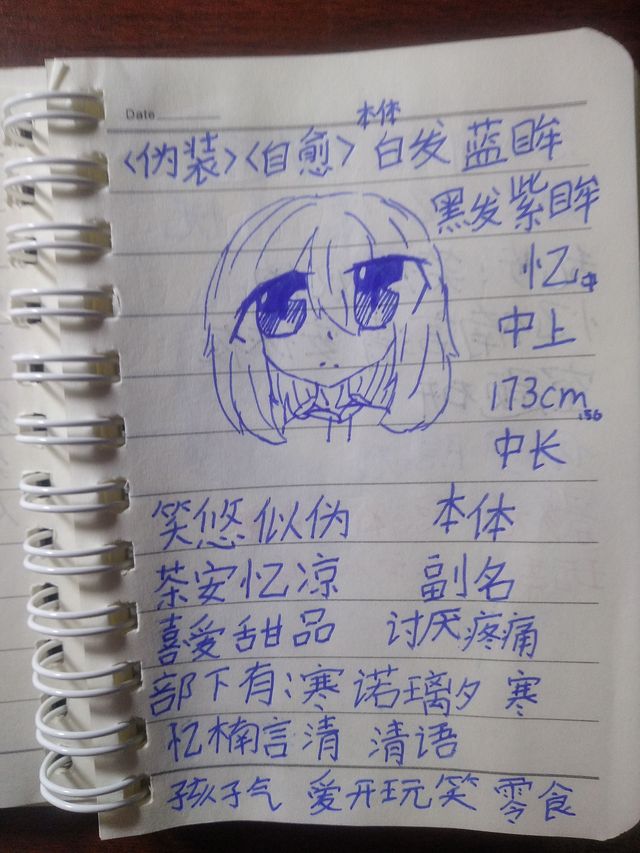 Date
本体
<伪装><自愈> 白发 蓝眸
黑发紫眸
忆中
中上
173cm 156
中长
笑悠似伪 本体
茶安忆凉 副名
喜爱甜品 讨厌疼痛
部下有:寒诺璃夕 寒
忆楠言清 清语
孩子气 爱开玩笑 零食